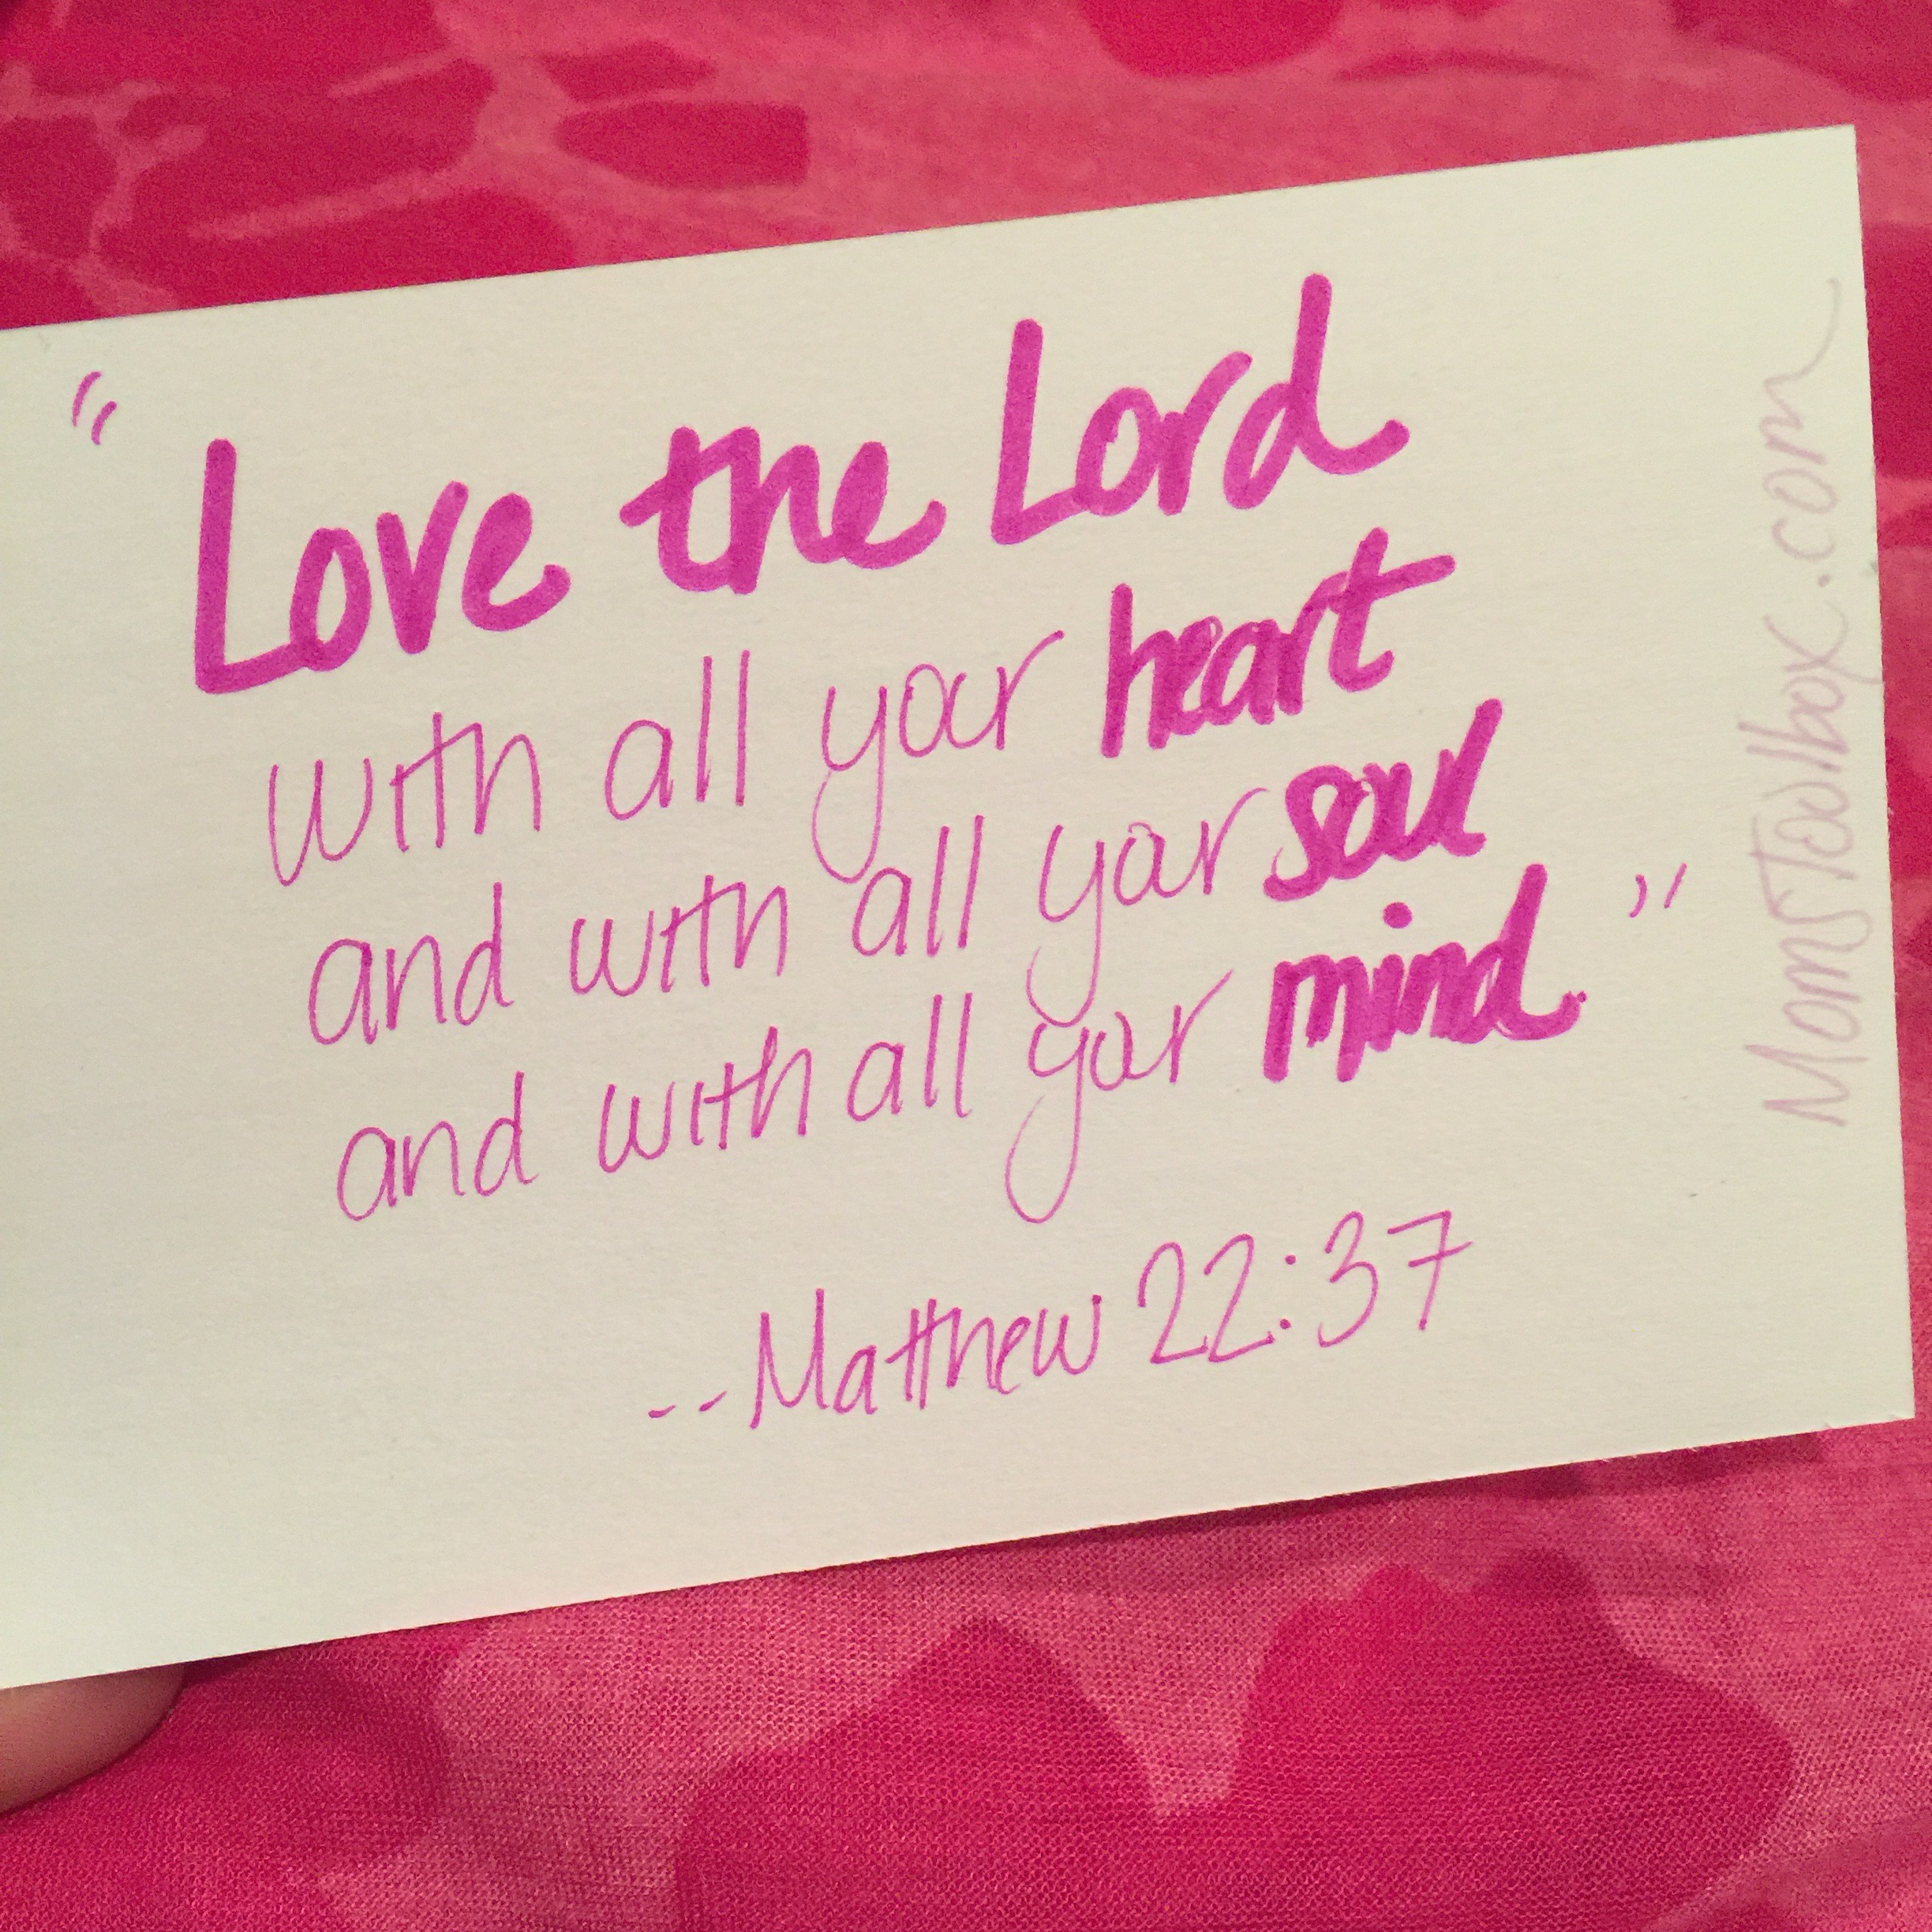 "Love the Lord
with all your heart
and with all your soul
and with all your mind."
--Matthew 22:37
MomsToolbox.com